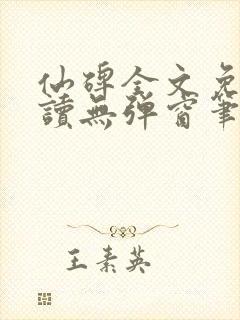 仙碎全文免
讀無彈窗筆
王素英